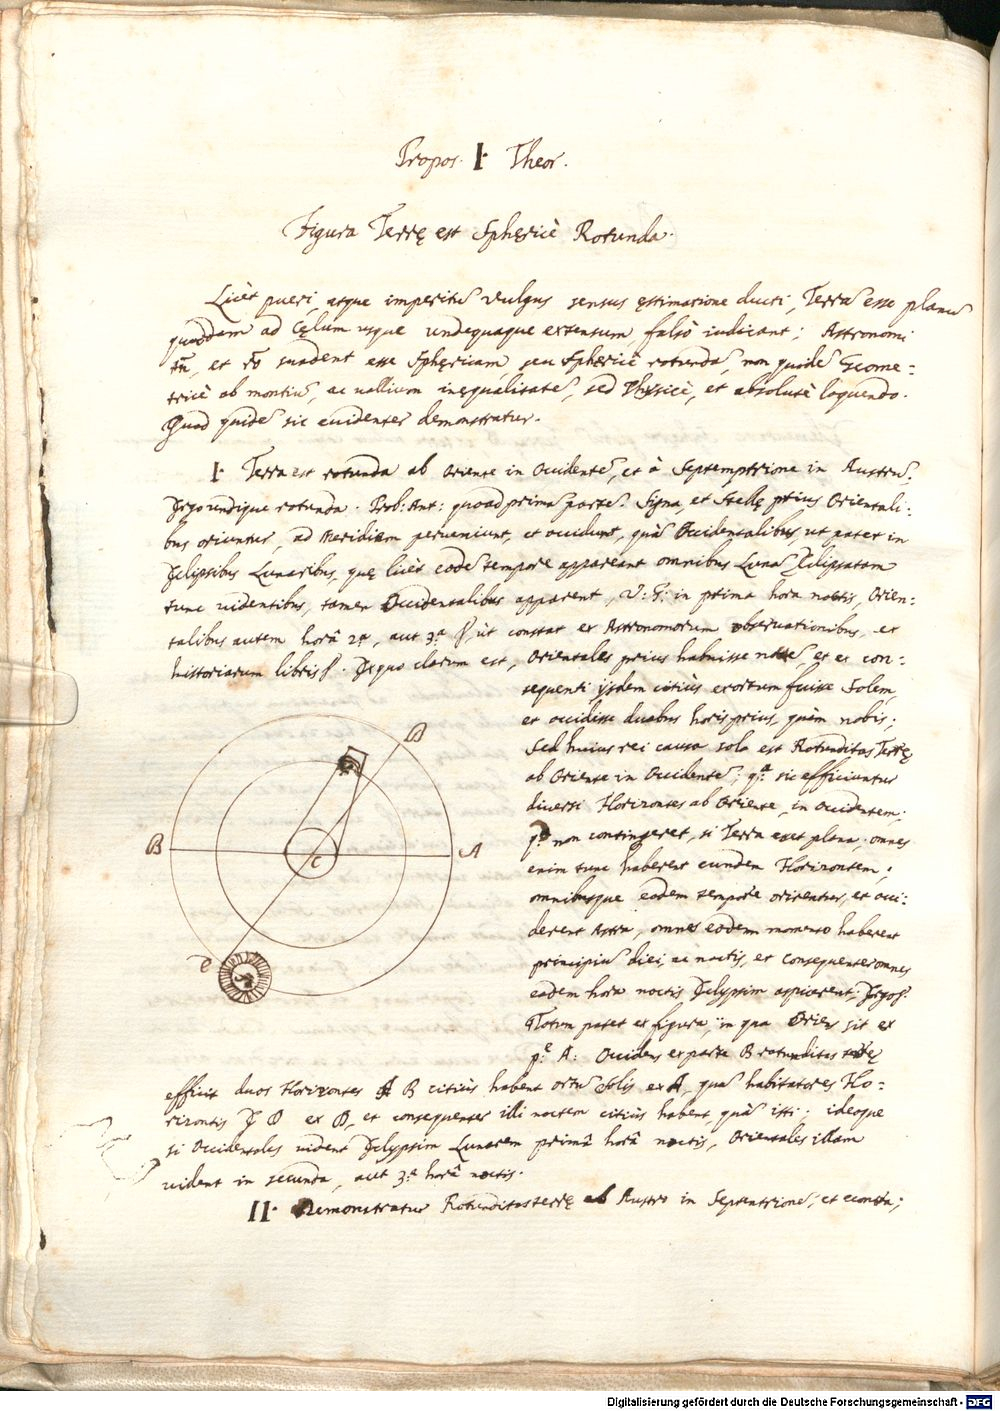 Propos. I. Theor.
Figura Terrę est Sphęricè Rotunda.
Licèt pueri, atque imperitũ vulgus sensus ęstimatione ducti, Terrã esse planũ
quoddam ad Cęlum usque undequaque extensum falsò iudicant; Astronomi
tñ, et suadent esse Sphęricam, seu Sphęricè rotundã, non quidẽ Geome=
tricè ob montiũ, ac vallium inęqualitatẽ, sed Physicè, et absolutè loquendo.
Quod quidẽ sic evidenter demonstratur.
I. Terra est rotunda ab Oriente in Occidentẽ, et à Septemptrione in Austrũ.
Ergo undique rotunda. Prob: Ant: quoad primã partẽ. Signa, et Stellę prius Orientali:
bus oriuntur, ad Meridiem perveniunt, et occidunt, quã Occidentalibus, ut patet in
Eclipsibus Lunaribus, quę licèt eodẽ tempore appareant omnibus Lunã Eclipsatam
tunc videntibus, tamen Occidentalibus apparent, V: G: in prima hora noctis, Orien-
talibus autem horâ 2ª, aut 3ª, ut constat ex Astronomorum observationibus, et
historiarum libris. Ex quo clarum est, Orientales prius habuisse noctẽ, et ex con-:
sequenti ijsdem citiùs exortum fuisse Solem,
et occidisse duabus horis prius, quàm nobis;
Sed huius rei causa sola est Rotunditas Terrę
ab Oriente in Occidentẽ; qª sic efficiuntur
diversi Horizontes ab Oriente, in Occidentem;
non contingeret, si Terra esset plana; omnes
enim tunc haberent eundem Horizontem;
omnibusque eodem tempore orirentur, et occi:
derent Astra, omnes eodem momento haberent
principiũ diei, ac noctis, et consequenter omnes
eadem hora noctis Eclypsim aspicerent; Ergo.
Totum patet ex figura, in qua Oriens sit ex
pᵉ A: Occidens ex parte B rotunditas terrę
B
D
A
C
E
efficit duos Horizontes A B citiùs habent ortũ Solis ex A, quã habitatores Ho=
rizontis E D ex D, et consequenter illi noctem citiùs habent, quã isti; ideoque
si Occidentales vident Eclypsim Lunarem primâ horâ noctis, Orientales illam
vident in secunda, aut 3ª horâ noctis.
II. Demonstratur Rotunditas terrę ab Austro in Septentrionẽ, et econtra;
Digitalisierung gefördert durch die Deutsche Forschungsgemeinschaft - DFG